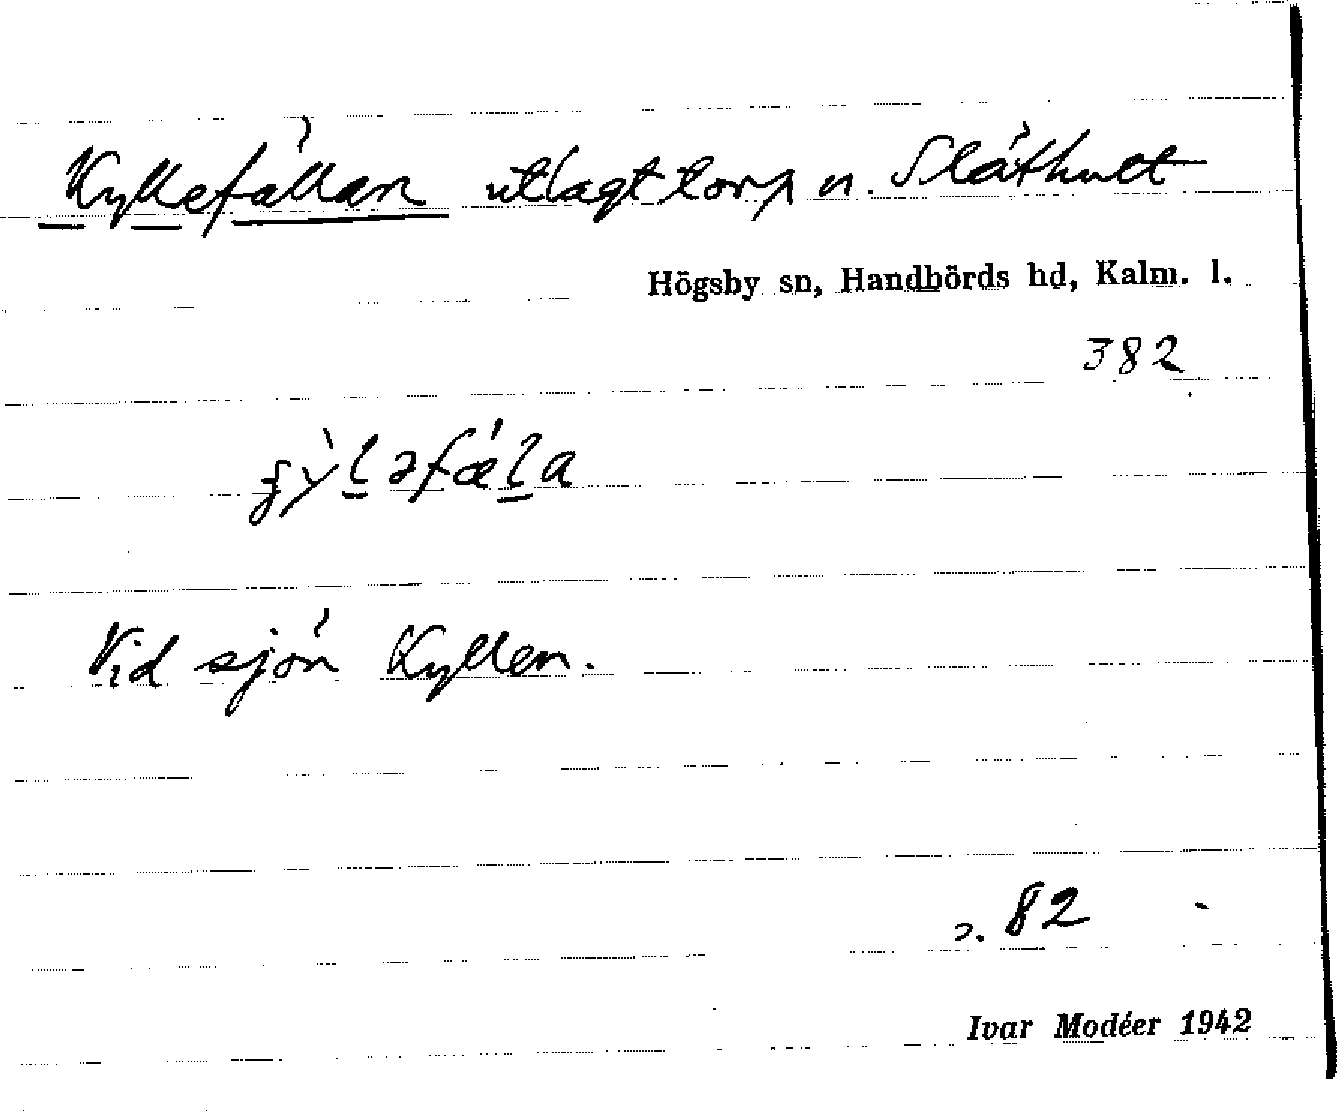 Kyllefällan utlagt torp u. Slåthult
Högsby sn, Handbörds hd, Kalm. l.
382
Vid sjön Kyllen.
s. 82
Ivar Modéer 1942